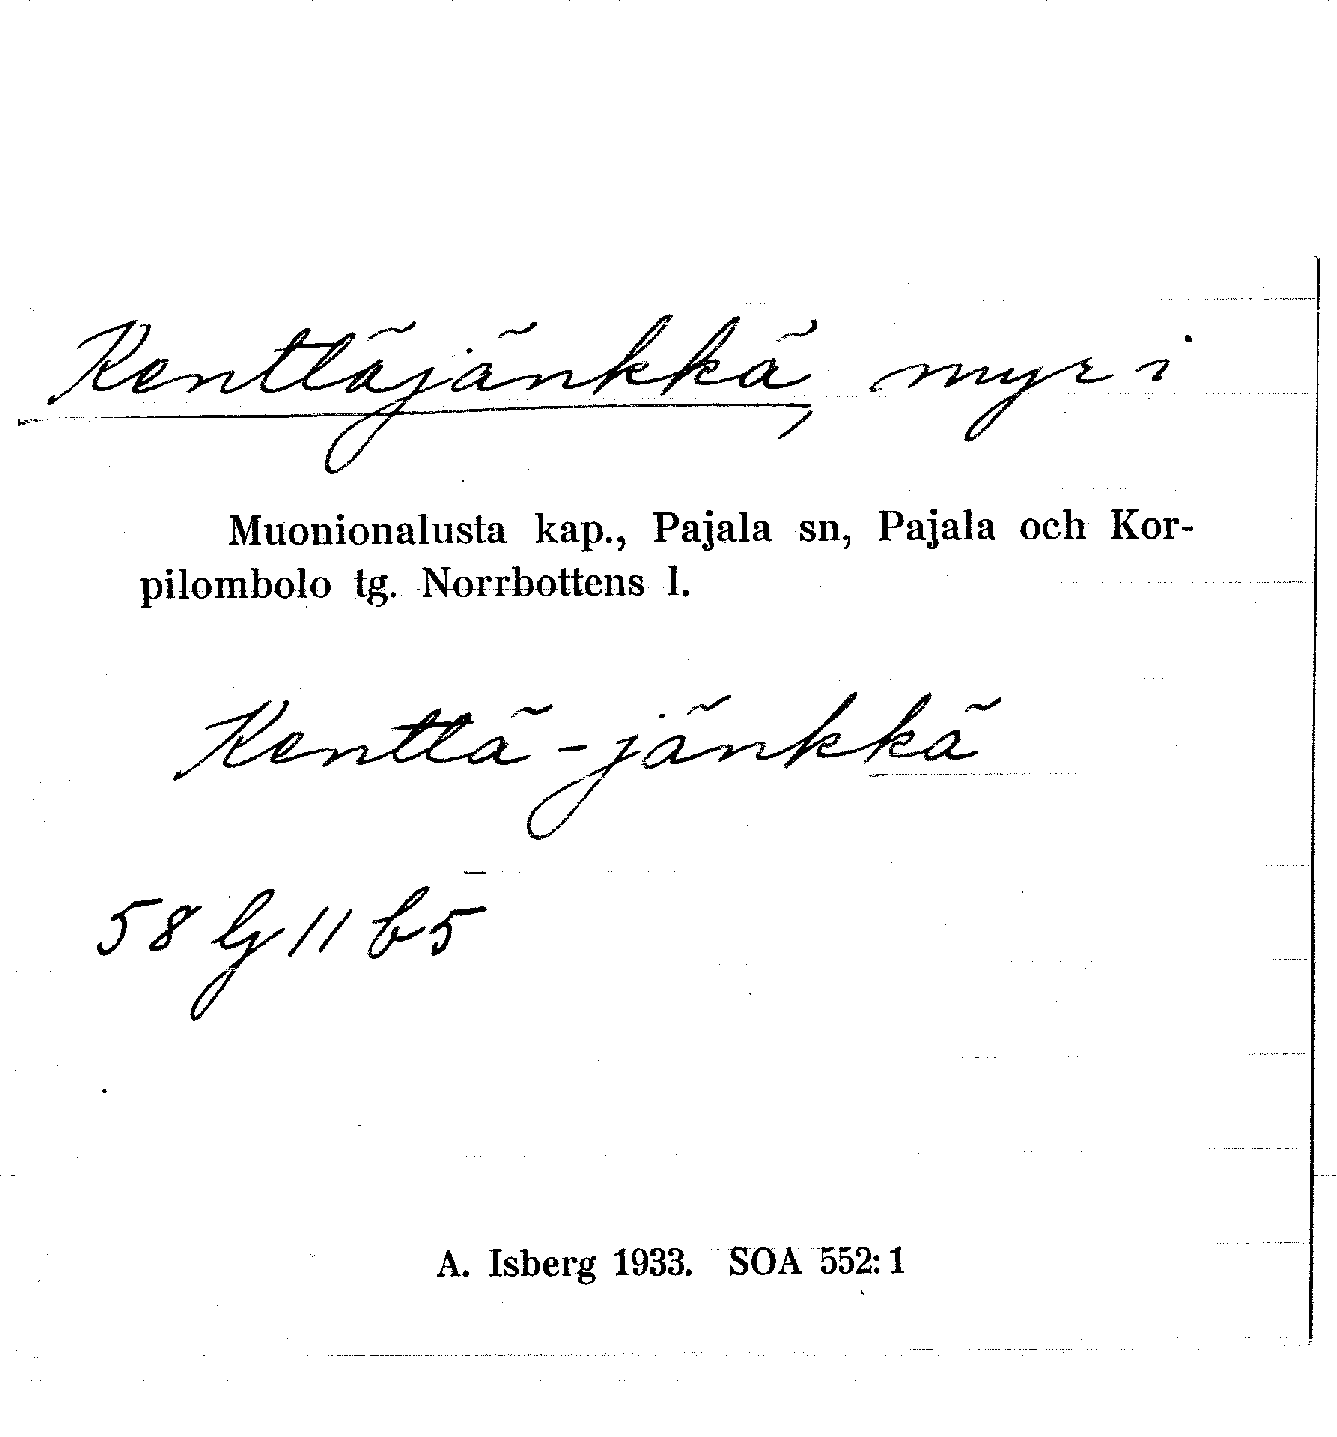 Kenttäjänkkä, myr i
Muonionalusta kap., Pajala sn, Pajala och Kor-
pilombolo tg. Norrbottens l.
Kenttä-jänkkä
58 G 11 b5
A. Isberg 1933. SOA 552:1